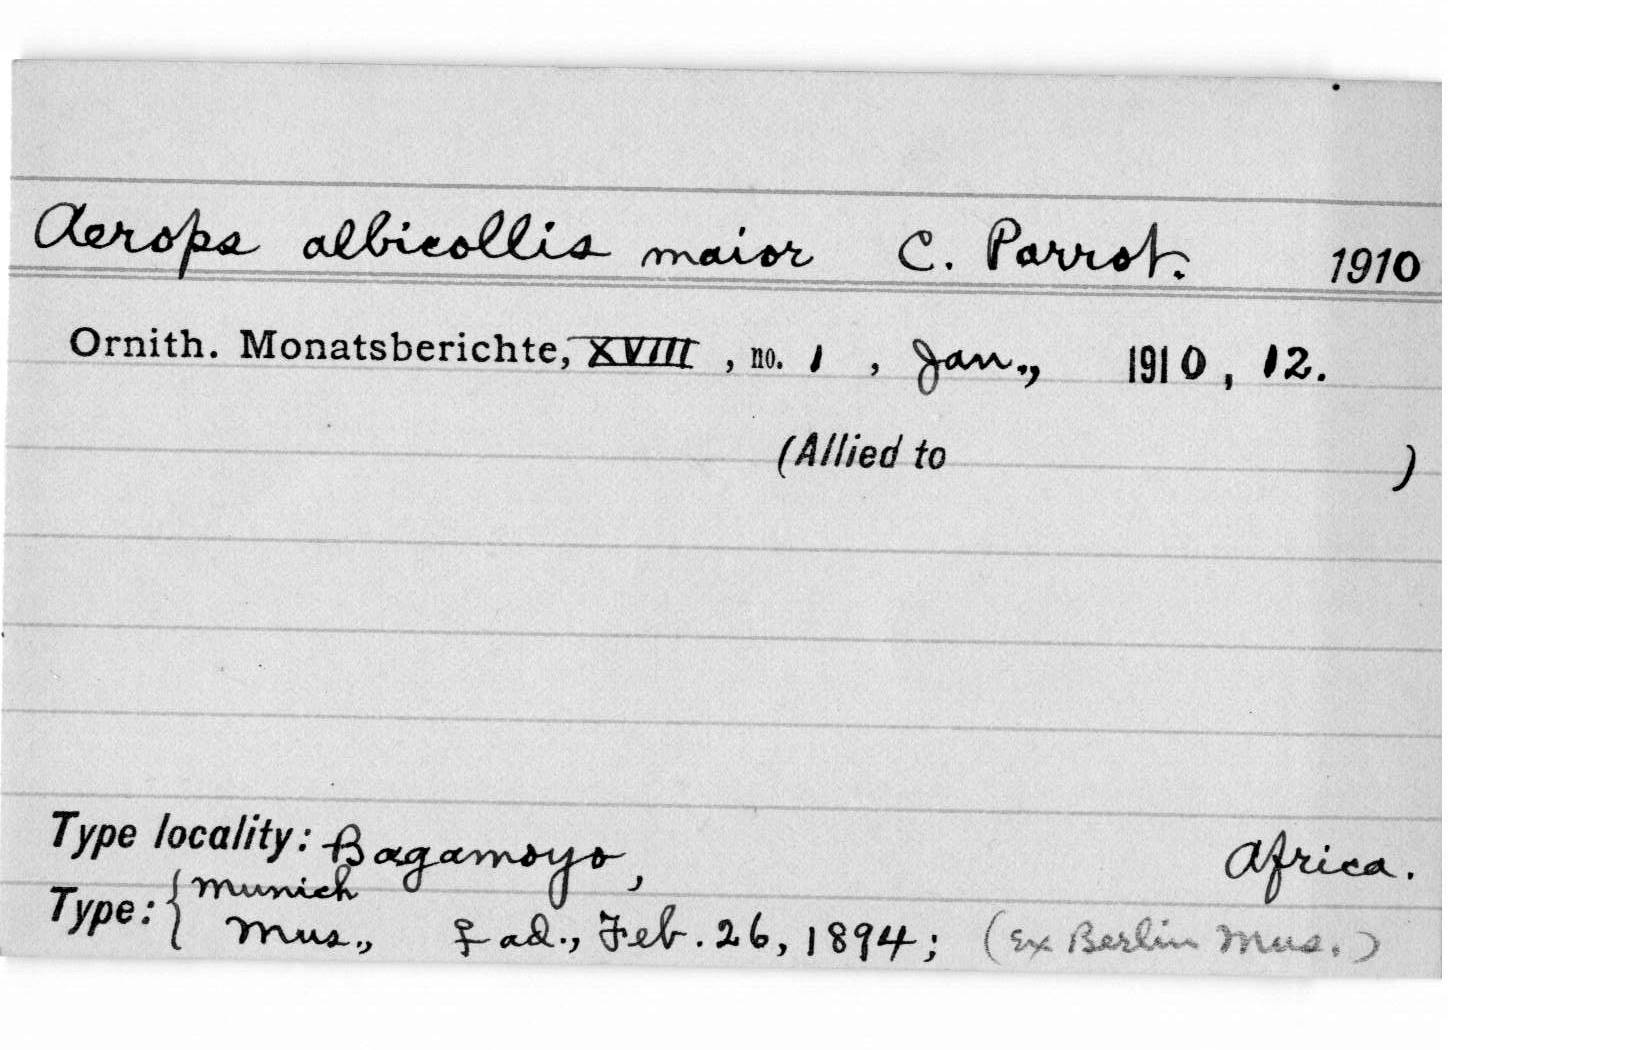 Aerops albicollis maior C. Parrot. 1910
Ornith. Monatsberichte, XVIII, no. 1, Jan., 1910, 12.
(Allied to )
Type locality: Bagamoyo, Africa.
Type: { Munich
Mus., ♀ ad., Feb. 26, 1894; (Ex Berlin Mus.)